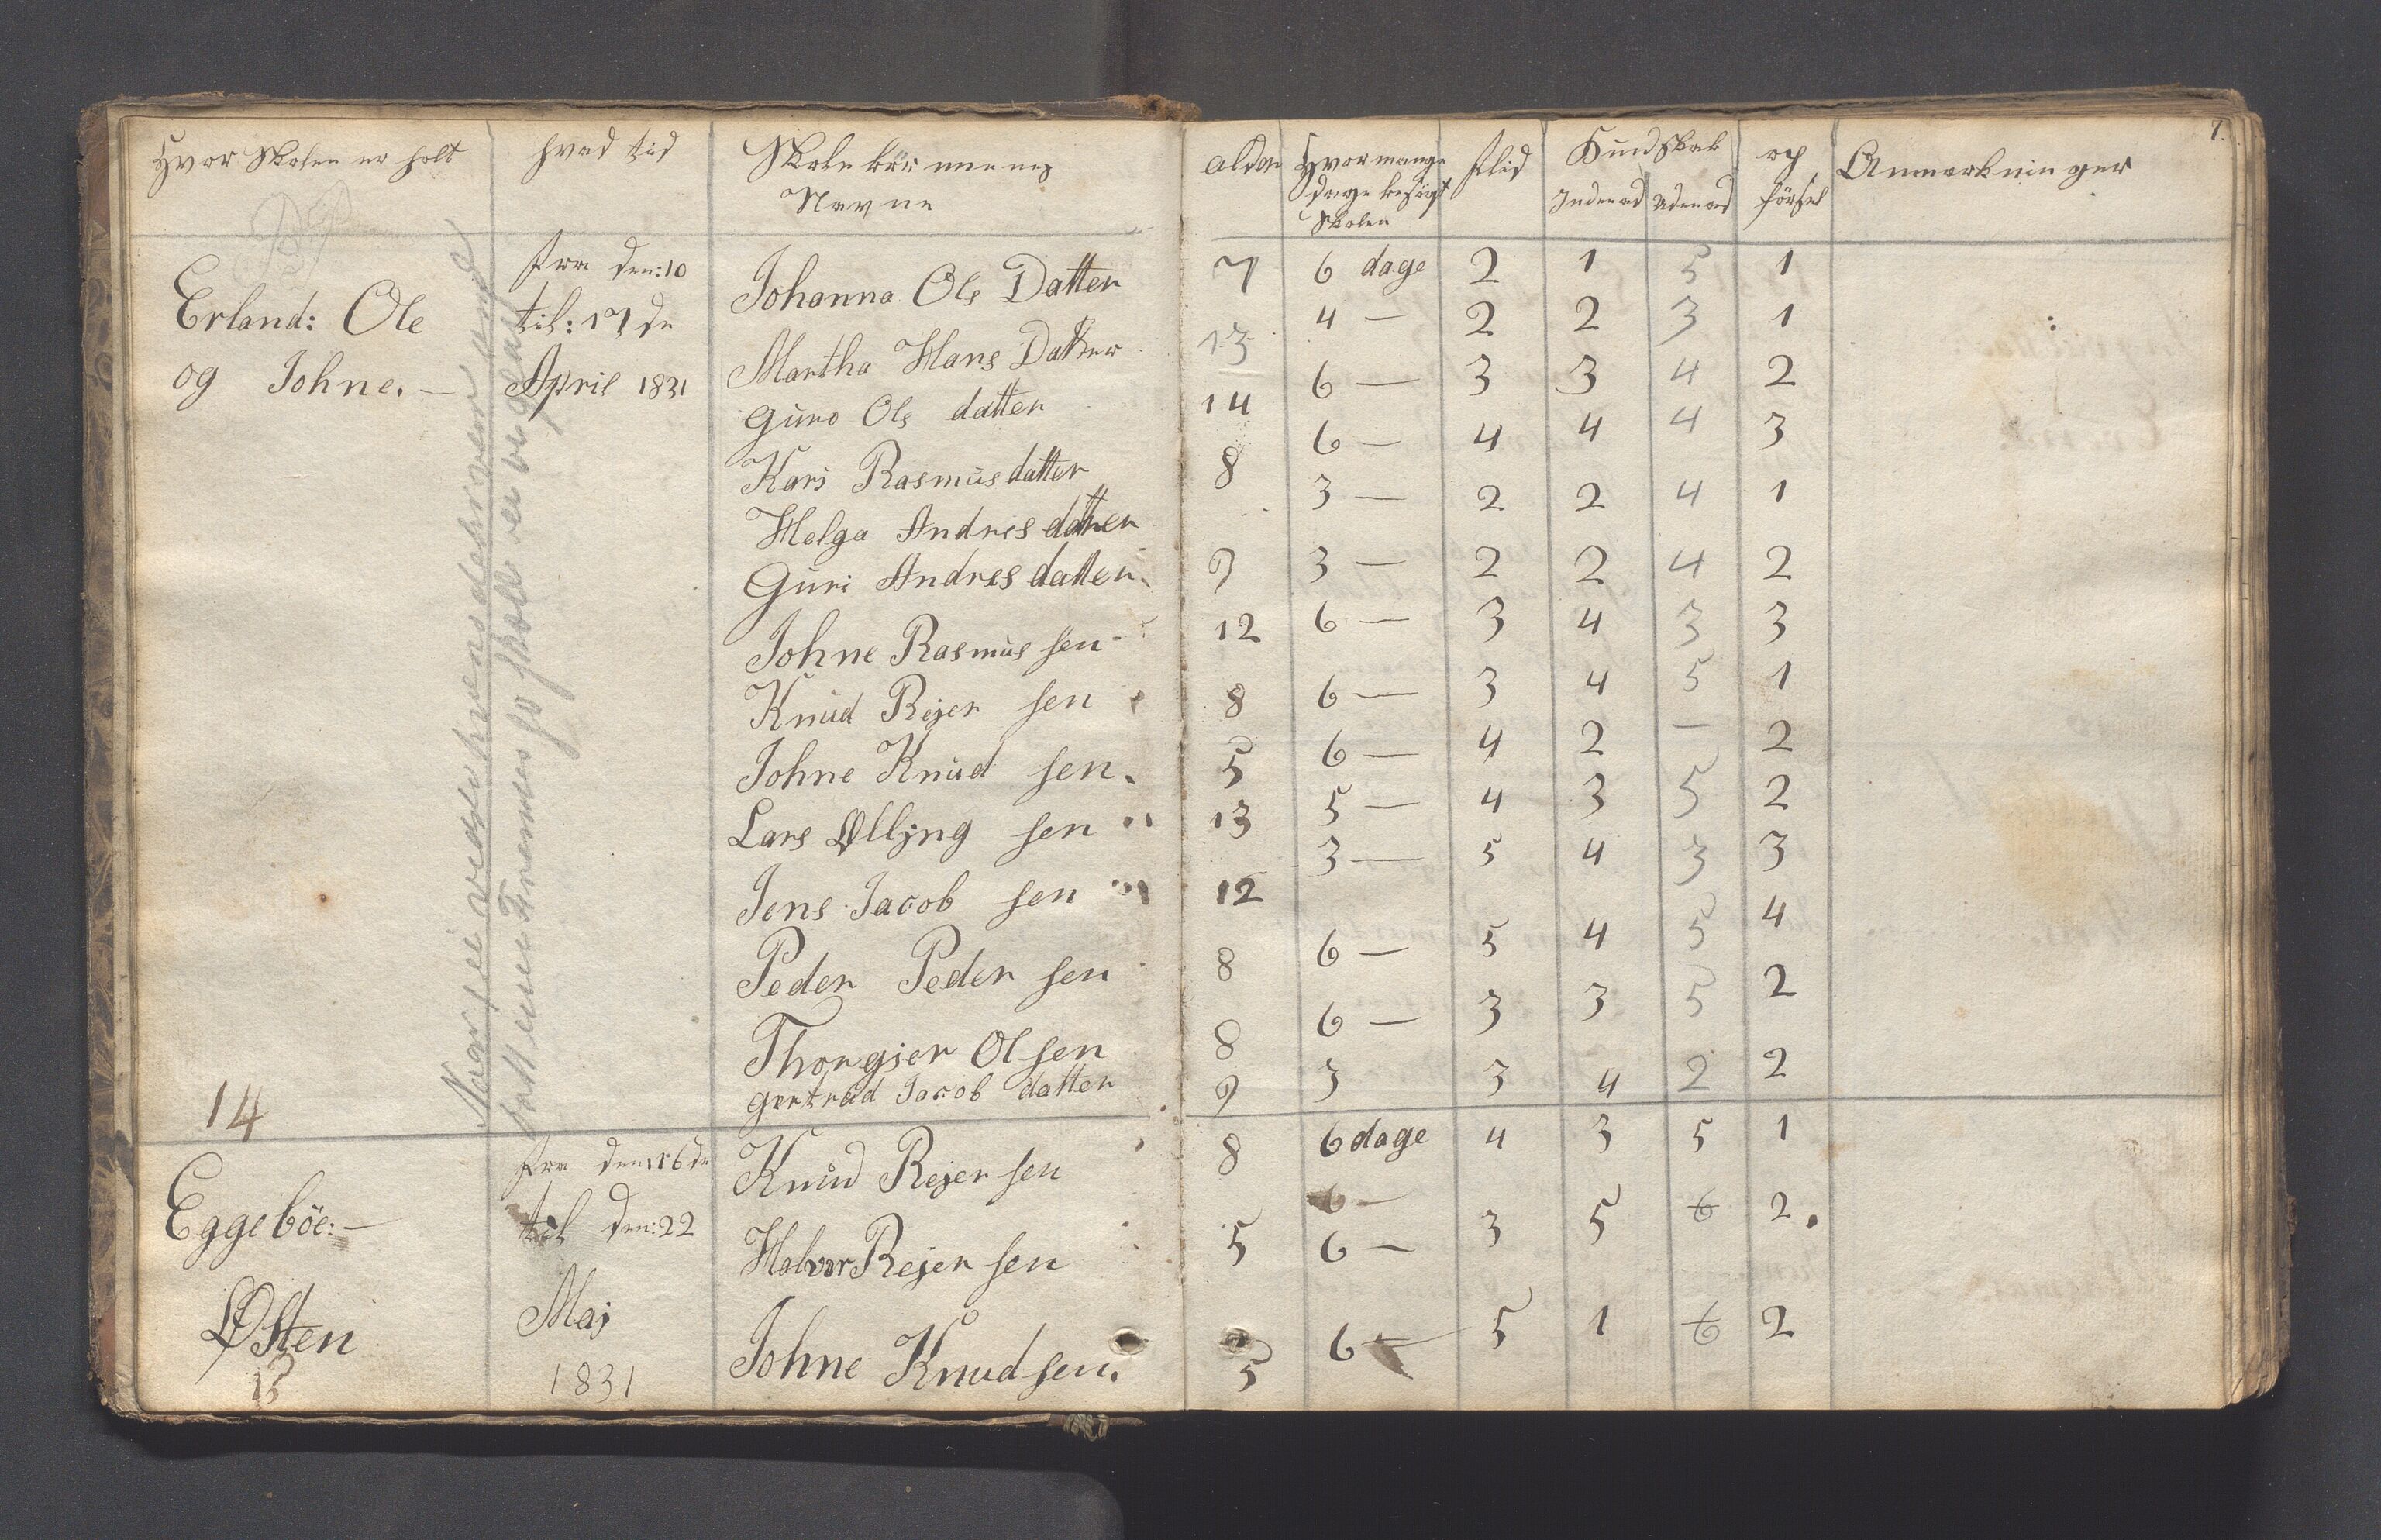 7.
Hvor Skolen er holt
hvad tid
Skolebörnenes
Navne
alder
Hvormange
dage besögt
Skolen
flid
Kundskab
Indenad
Udenad
op
försel
Anmerkninger
Erland: Ole
og Johne. —
fra den: 10
til: 17 de
April 1831
Johanna Ols Datter 7 6 dage 2 1 5 1
Martha Hans Datter 13 4 — 2 2 3 1
Guro Ols datter 14 6 — 3 3 4 2
Kari Rasmusdatter 8 6 — 4 4 4 3
Helga Andres datter 3 — 2 2 4 1
Guri Andres datter. 9 3 — 2 2 4 2
Johne Rasmus sen 12 6 — 3 4 3 3
Knud Rejer sen 8 6 — 3 4 5 1
Johne Knud sen. 5 6 — 4 2 — 2
Lars Ølljng sen 13 5 — 4 3 5 2
Jens Jacob sen 12 3 — 5 4 3 3
Peder Peder sen 8 6 — 5 4 5 4
Thorgier Olsen 8 6 — 3 3 5 2
gertrud Jacob datter 9 3 3 4 2 2
14
Eggeböe: —
Østen
13
fra den 16 de
til den: 22
Maj
1831
Knud Rejer sen 8 6 dage 4 3 5 1
6 —
Halvor Rejer sen 5 6 — 3 5 6 2.
Johne Knudsen. 5 6 — 5 1 6 2